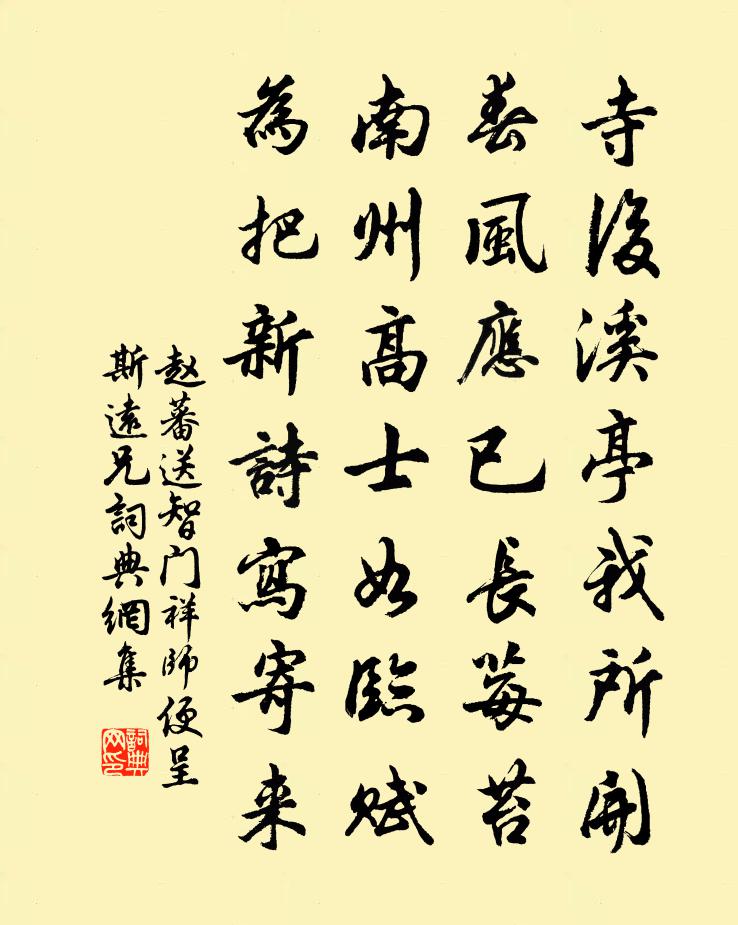 寺後溪亭我所開
春風應已長莓苔
南州高士如臨賦
為把新詩寫寄來
赵蕃送智门祥師便呈
斯遠兄詞典網集
詞典网印